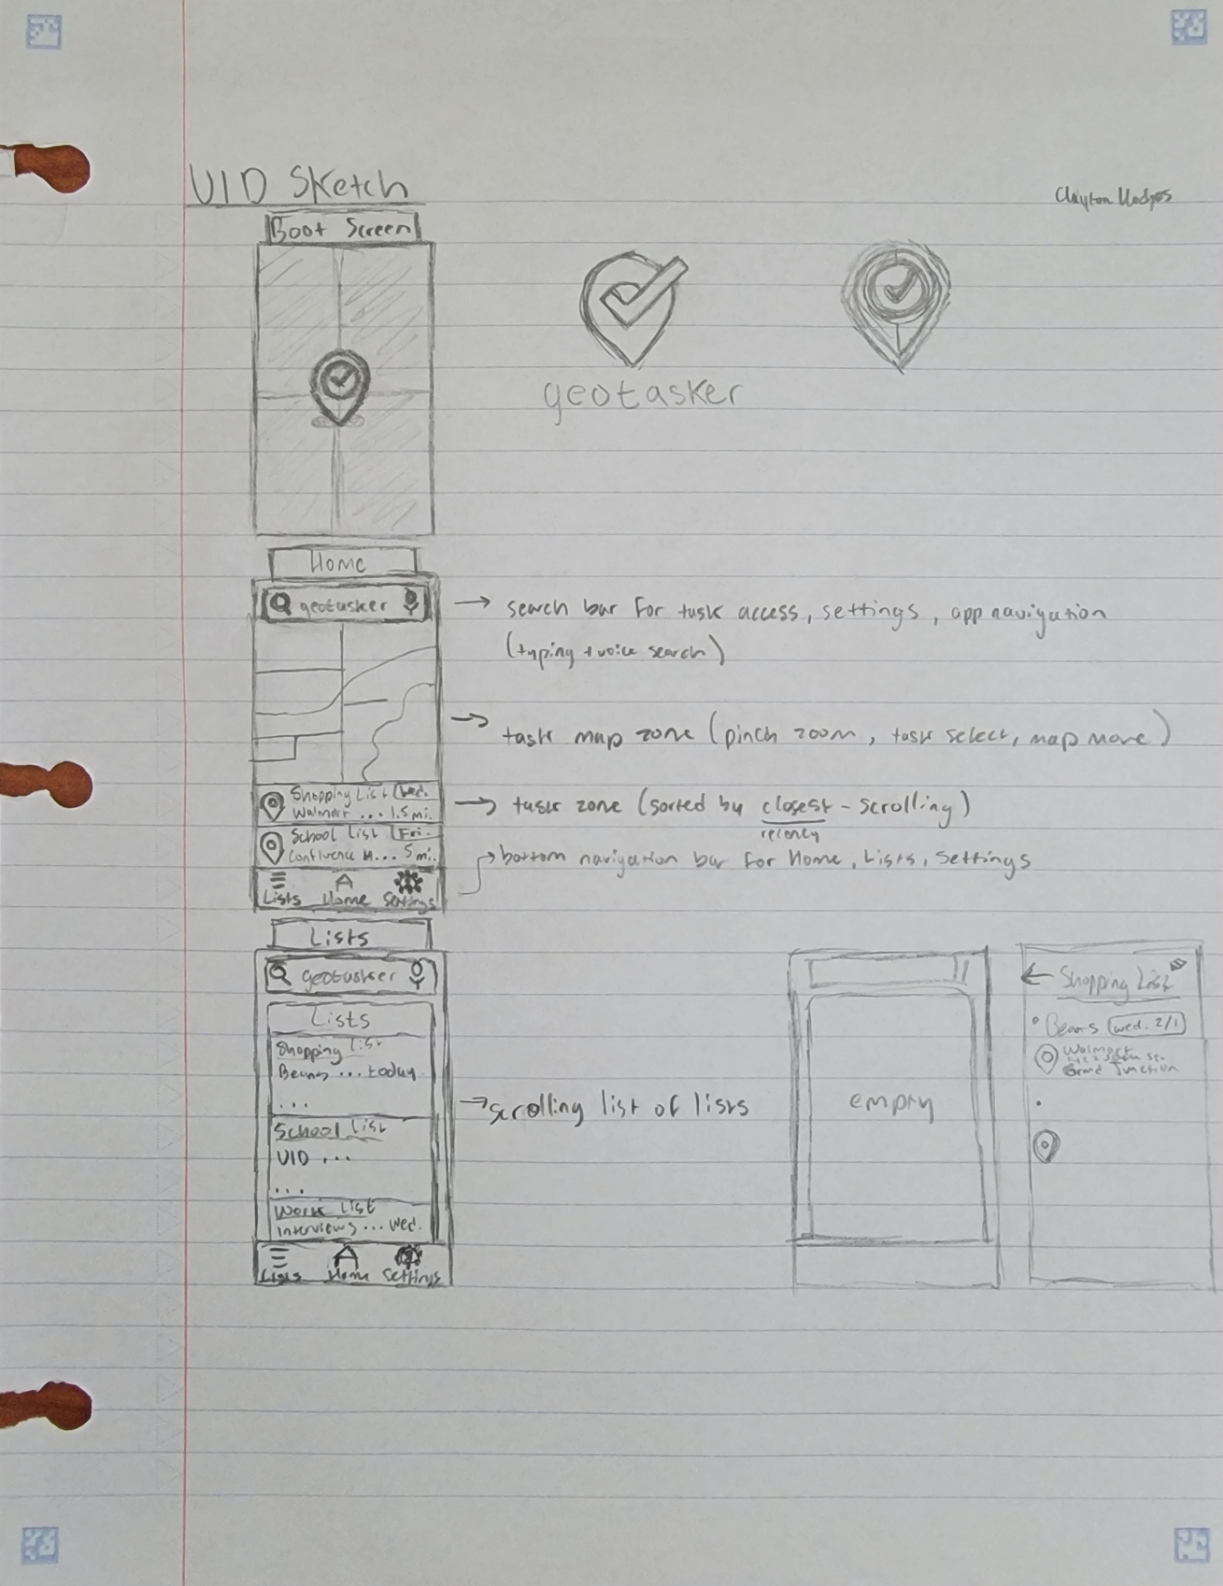 UID Sketch
Clayton Hodges
Boot Screen
geotasker
Home
geotasker
→ search bar for task access, settings, app navigation
(typing + voice search)
→ task map zone (pinch zoom, task select, map move)
Shopping List Wed.
Walmart ... 1.5 mi.
→ task zone (sorted by closest - scrolling)
recency
School List Fri.
Confluence H... 5 mi.
→ bottom navigation bar for Home, Lists, Settings
Lists Home Settings
Lists
geotasker
Lists
Shopping List
Beans ... today
...
School List
UID ...
...
Work List
Interviews ... Wed.
Lists Home Settings
→ scrolling list of lists
empty
← Shopping List
• Beans Wed. 2/1
Walmart
Grand Junction
•